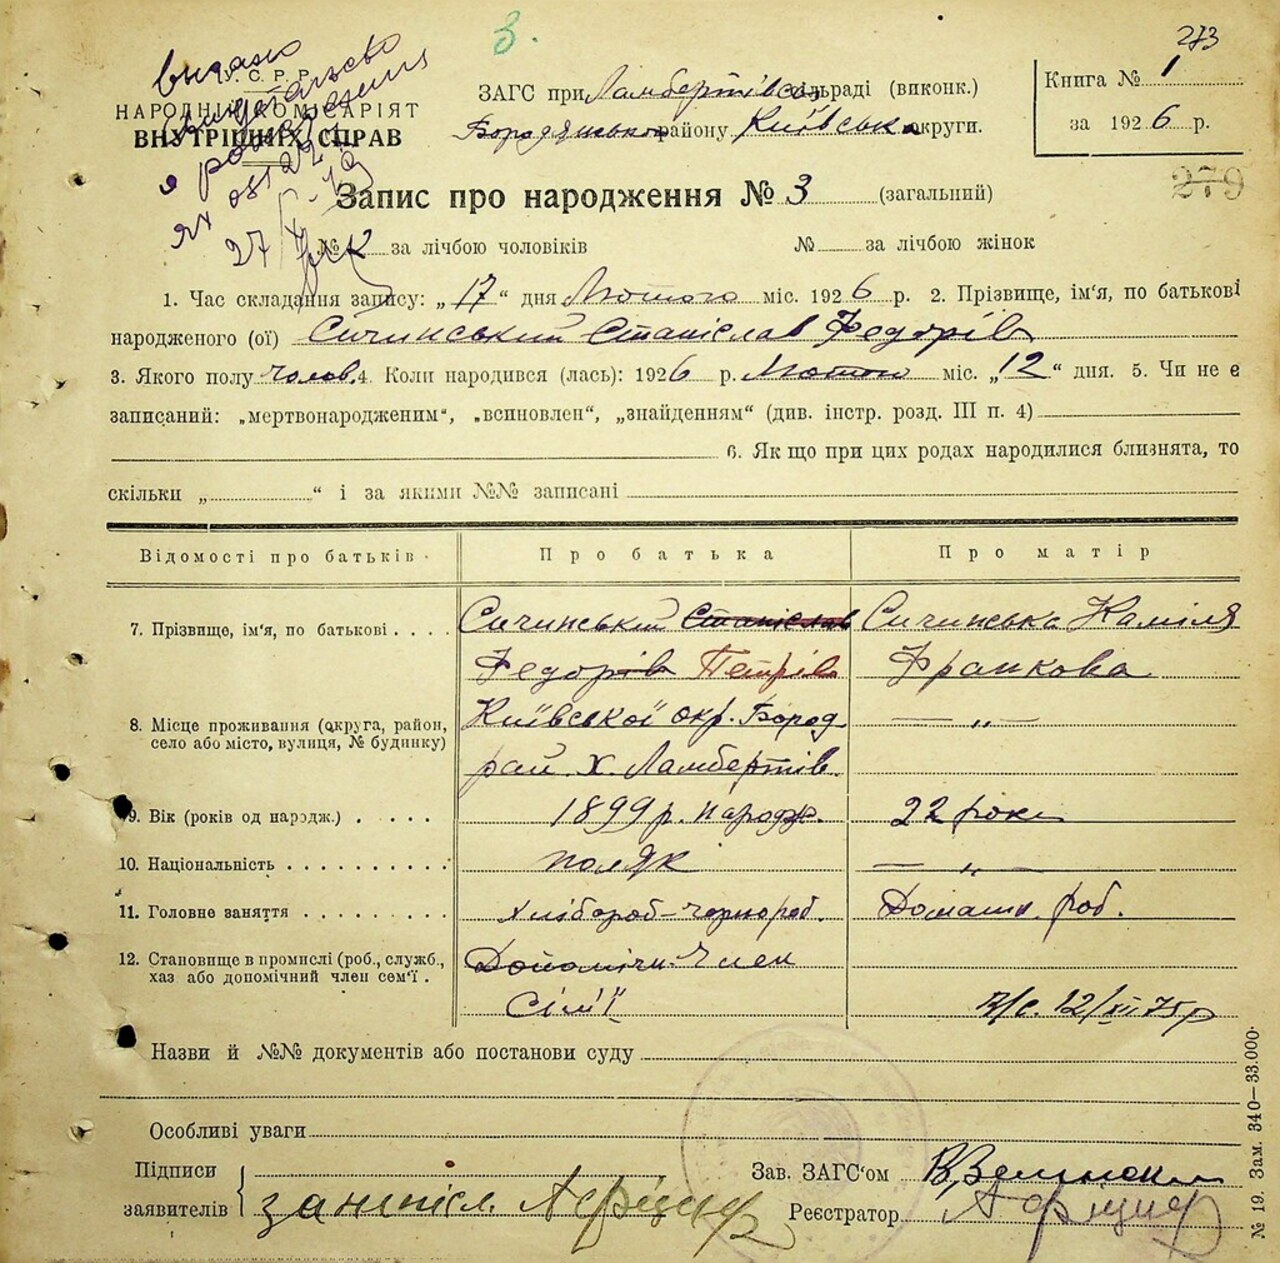 3.
273
У.С.Р.Р.
НАРОДНІЙ КОМІСАРІЯТ
ВНУТРІШНИХ СПРАВ
ЗАГС при Ламбертівськ сільраді (виконк.)
Бородянськом району Київськ округи.
Книга № 1
за 1926 р.
279
Запис про народження № 3 (загальний)
№ 2 за лічбою чоловіків № за лічбою жінок
1. Час складання запису: „17“ дня Лютого міс. 1926 р. 2. Прізвище, ім'я, по батькові
народженого (ої) Сичинський Станіслав Федорів
3. Якого полу Чолов. 4. Коли народився (лась): 1926 р. Лютого міс. „12“ дня. 5. Чи не є
записаний: „мертвонародженим“, „всиновлен“, „знайденням“ (див. інстр. розд. III п. 4)
6. Як що при цих родах народилися близнята, то
скільки „ “ і за якими №№ записані
Відомості про батьків. Про батька Про матір
7. Прізвище, ім'я, по батькові . . . . Сичинський Станіслав Сичинська Каміля
Федорів Петрів Франкова
8. Місце проживання (округа, район, Київської окр. Бород. — „ —
село або місто, вулиця, № будинку) рай. Х. Ламбертів.
9. Вік (років од народж.) . . . . 1899 р. народж. 22 роки
10. Національність . . . . . . . . . поляк — „ —
11. Головне заняття . . . . . . . . Хлібороб-чорнороб. Домашн. роб.
12. Становище в промислі (роб., служб., Допоміжн. Член
хаз або допомічний член сем'ї . Сім'ї 12/XII 75р
Назви й №№ документів або постанови суду
Особливі уваги
Підписи
заявителів
Зав. ЗАГС'ом
Реєстратор
№ 19. Зам. 340—33.000.